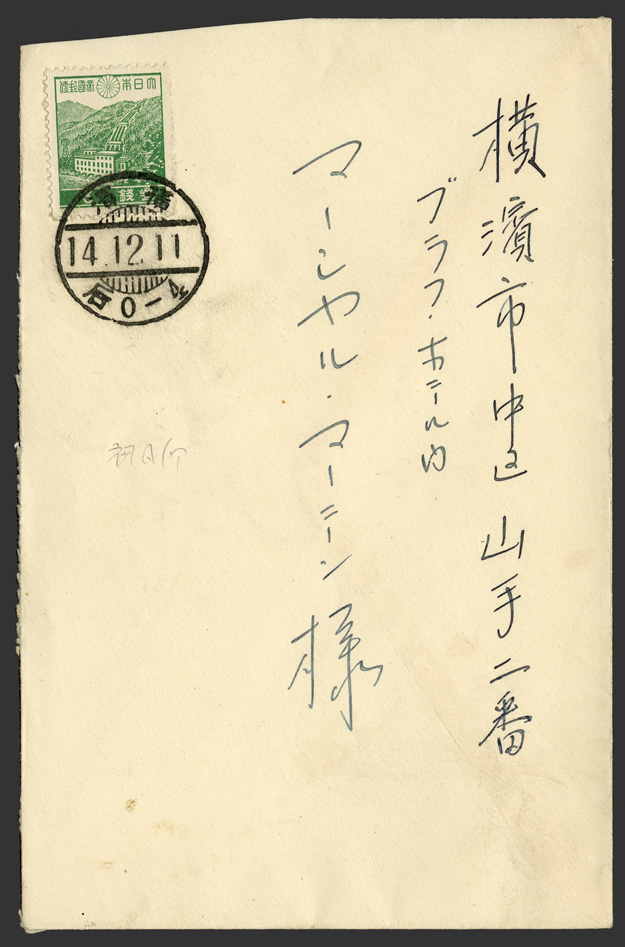 横濱市中区山手二番
ブラフ・ホテル内
マーシャル・マーテン様
大日本帝國郵便
横濱
14.12.11
后0-4
初日印